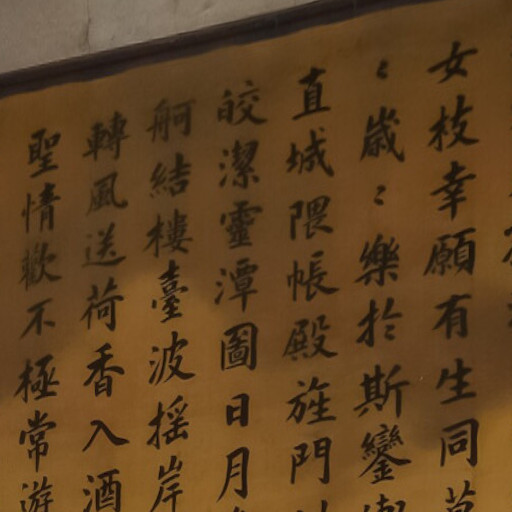 女枝幸願有生同
〻歲〻樂於斯鑾
直城隈帳殿旌門
皎潔靈潭圖日月
舸結樓臺波搖岸
轉風送荷香入酒
聖情歡不極常游